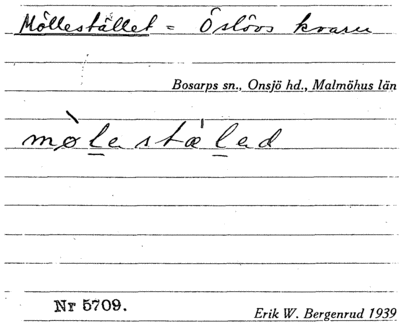 Möllestället = Öslövs kvarn
Bosarps sn., Onsjö hd., Malmöhus län
mø̀lestæ̀led
Nr 5709.
Erik W. Bergenrud 1939